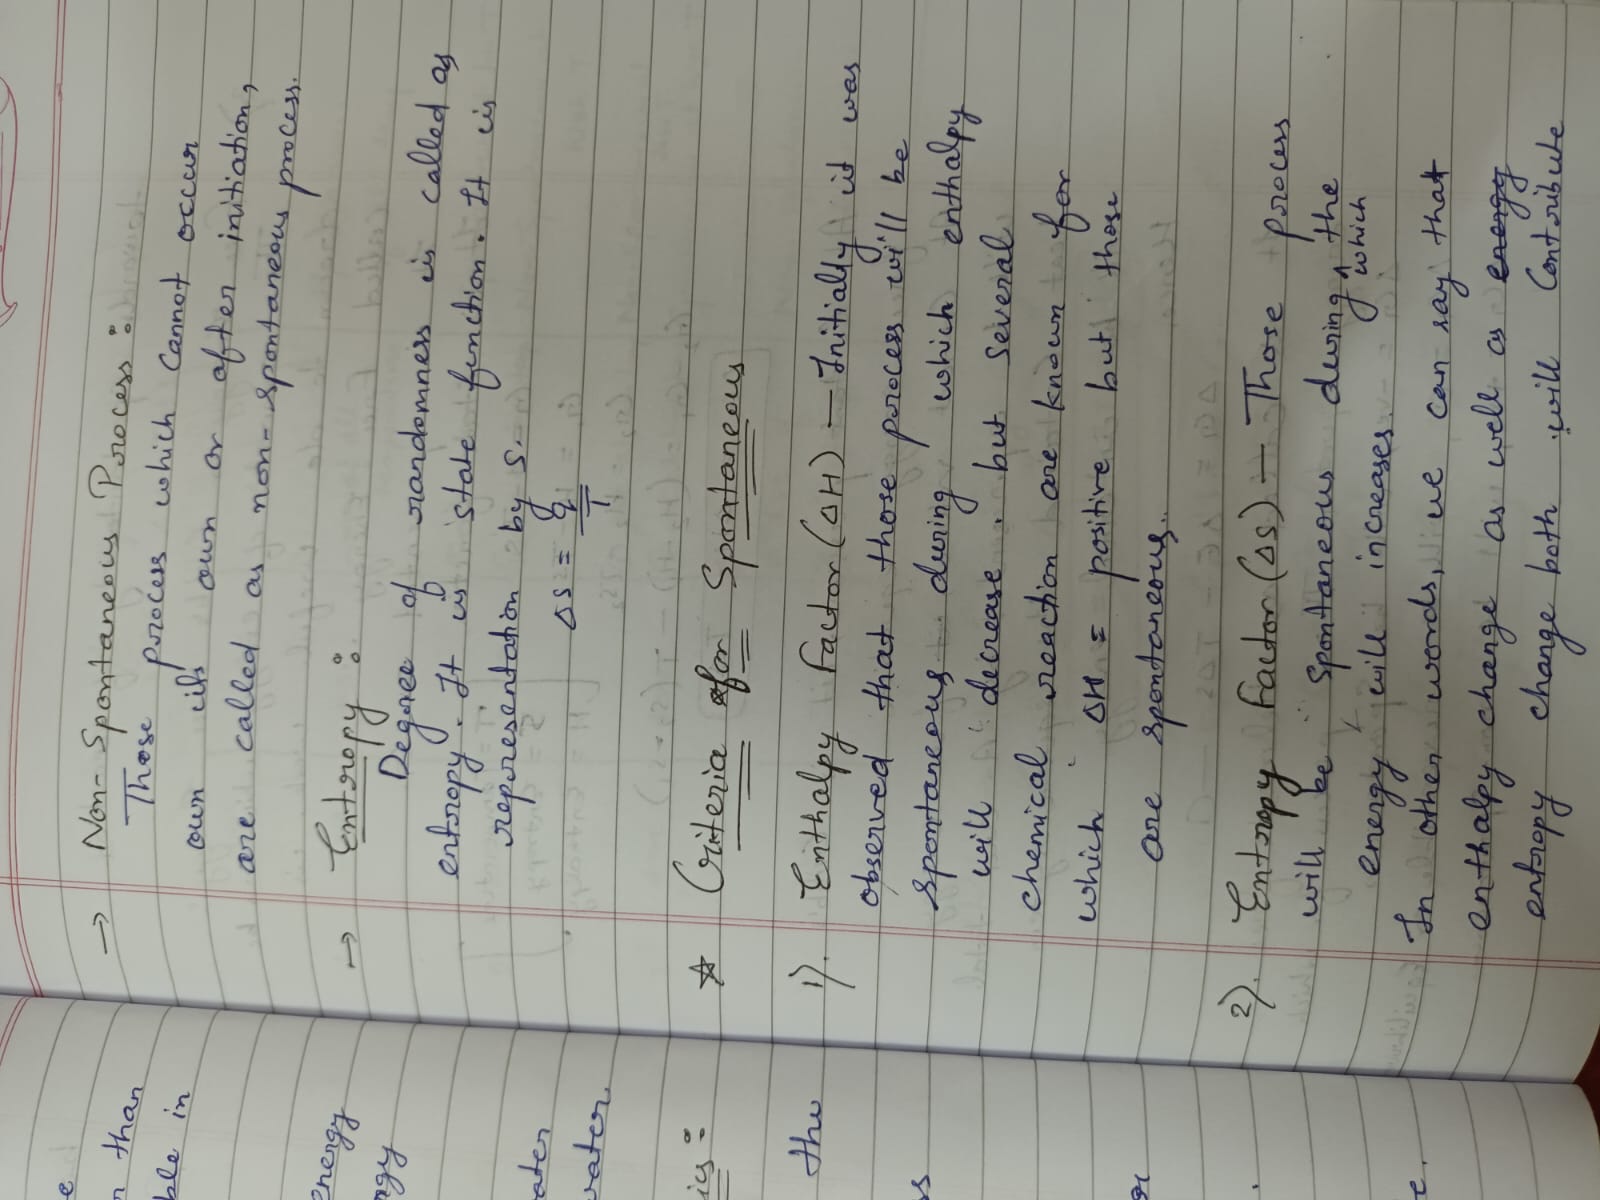 → Non-Spontaneous Process:
Those process which cannot occur
own its own or after initiation,
are called as non-spontaneous process.
→ Entropy:
Degree of randomness is called as
entropy. It is state function. It is
representation by S.
ΔS = q/T
☆ Criteria for Spontaneous
1). Enthalpy Factor (ΔH) — Initially it was
observed that those process will be
spontaneous during which enthalpy
will decrease. but several
chemical reaction are known for
which ΔH = positive but those
are spontaneous.
2). Entropy Factor (ΔS) — Those process
will be spontaneous during the
which
energy will increases.
In other words, we can say that
enthalpy change as well as energy
entropy change both will contribute
than
ble in
energy
gy
ater
water.
ics:
the